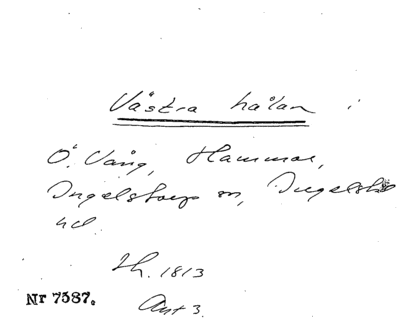 Västra hålan i
Ö. Vång, Hammar,
Ingelstorps sn, Ingelsta
hd.
Lh. 1813
Nr 7587. Akt 3.